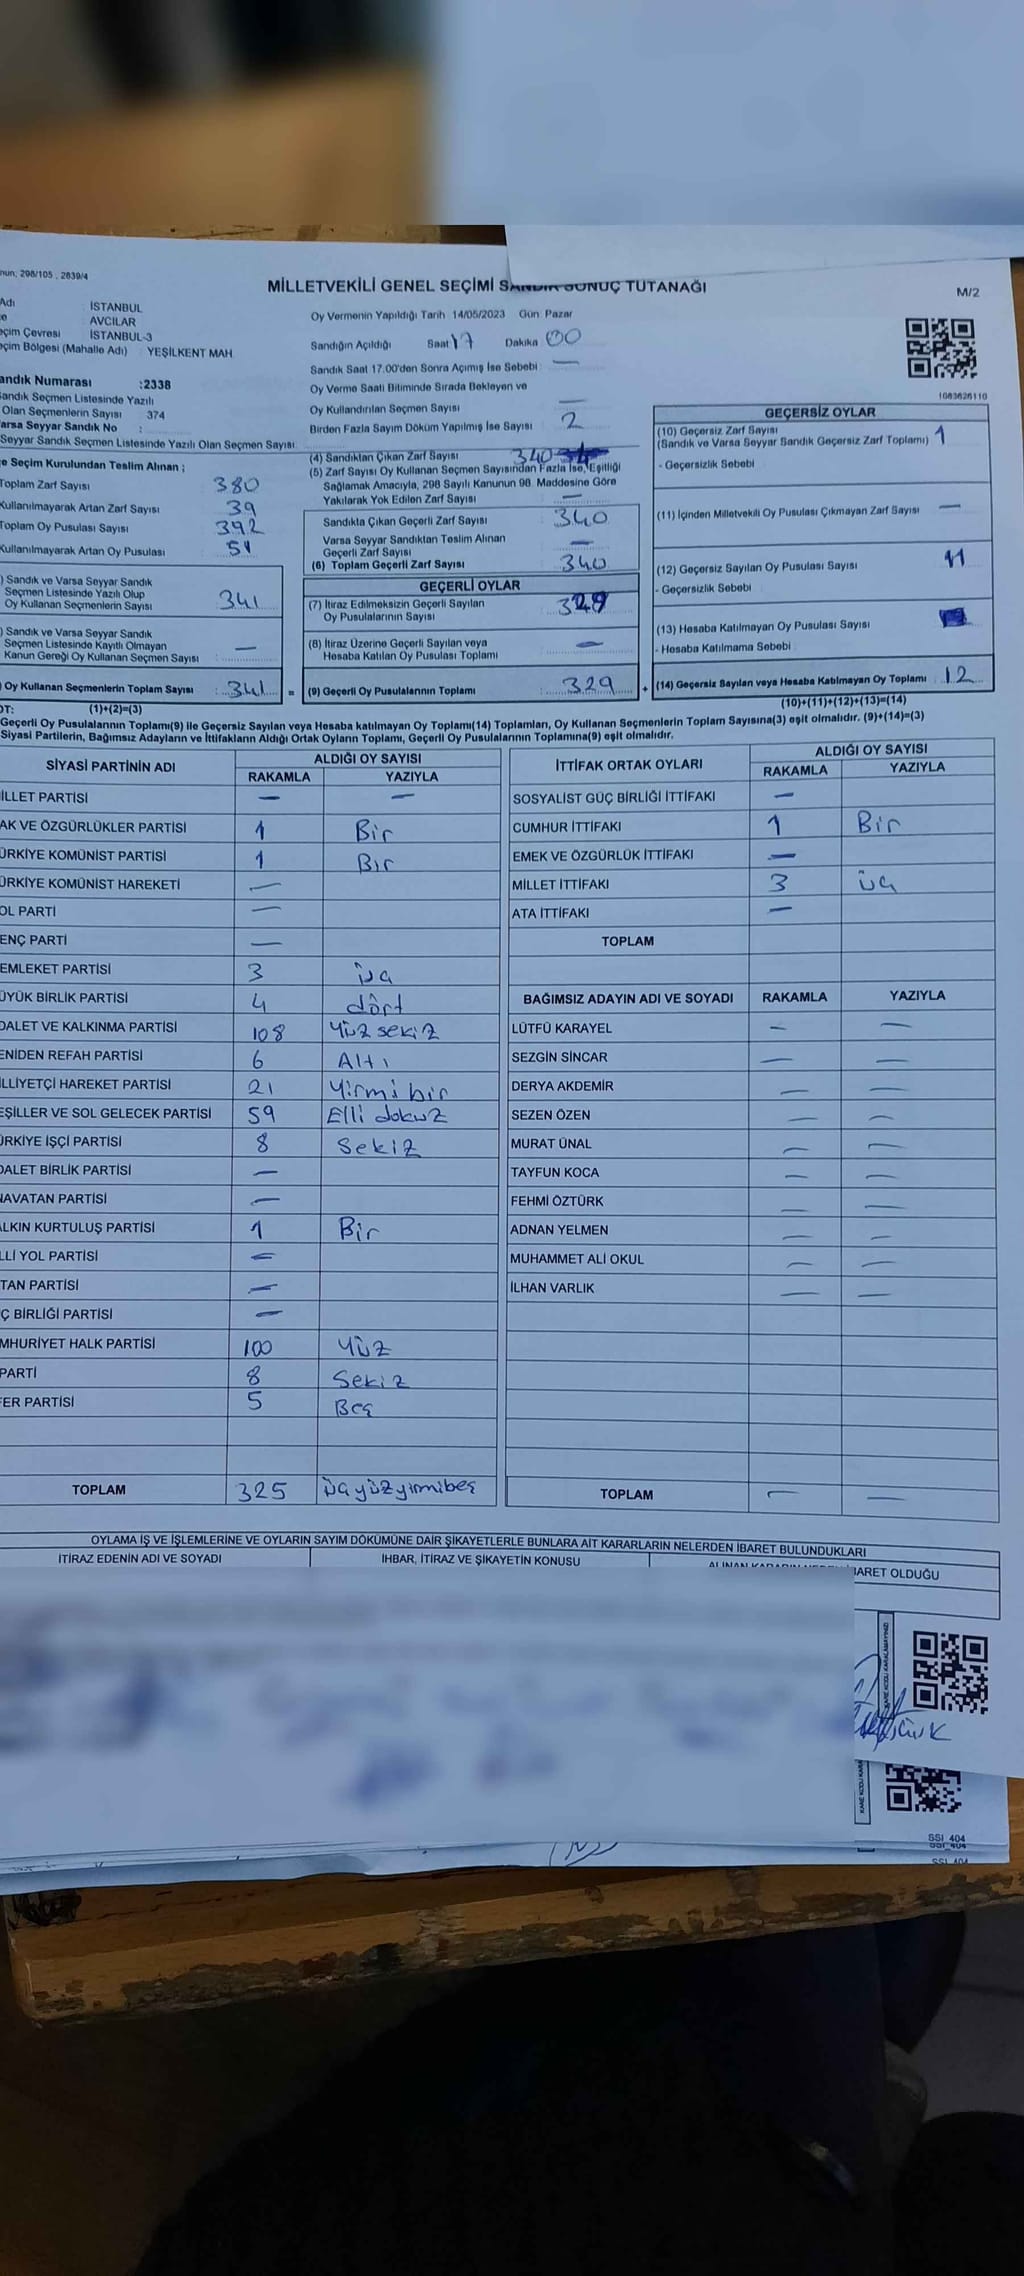 298/105 , 2839/4
MİLLETVEKİLİ GENEL SEÇİMİ SANDIK SONUÇ TUTANAĞI
M/2
Adı : İSTANBUL
AVCILAR
eçim Çevresi : İSTANBUL-3
eçim Bölgesi (Mahalle Adı) : YEŞİLKENT MAH
andık Numarası :2338
andık Seçmen Listesinde Yazılı
Olan Seçmenlerin Sayısı 374
Varsa Seyyar Sandık No :
Seyyar Sandık Seçmen Listesinde Yazılı Olan Seçmen Sayısı:
e Seçim Kurulundan Teslim Alınan ;
Toplam Zarf Sayısı 380
Kullanılmayarak Artan Zarf Sayısı 39
Toplam Oy Pusulası Sayısı 392
Kullanılmayarak Artan Oy Pusulası 51
) Sandık ve Varsa Seyyar Sandık
Seçmen Listesinde Yazılı Olup
Oy Kullanan Seçmenlerin Sayısı 341
) Sandık ve Varsa Seyyar Sandık
Seçmen Listesinde Kayıtlı Olmayan
Kanun Gereği Oy Kullanan Seçmen Sayısı : —
) Oy Kullanan Seçmenlerin Toplam Sayısı : 341 =
(1)+(2)=(3)
Oy Vermenin Yapıldığı Tarih 14/05/2023 Gün: Pazar
Sandığın Açıldığı Saat 17 Dakika 00
Sandık Saat 17.00'den Sonra Açımış İse Sebebi : —
Oy Verme Saati Bitiminde Sırada Bekleyen ve
Oy Kullandırılan Seçmen Sayısı —
Birden Fazla Sayım Döküm Yapılmış İse Sayısı 2
(4) Sandıktan Çıkan Zarf Sayısı 340
(5) Zarf Sayısı Oy Kullanan Seçmen Sayısından Fazla İse, Eşitliği
Sağlamak Amacıyla, 298 Sayılı Kanunun 98. Maddesine Göre
Yakılarak Yok Edilen Zarf Sayısı —
Sandıkta Çıkan Geçerli Zarf Sayısı 340
Varsa Seyyar Sandıktan Teslim Alınan
Geçerli Zarf Sayısı —
(6) Toplam Geçerli Zarf Sayısı 340
GEÇERLİ OYLAR
(7) İtiraz Edilmeksizin Geçerli Sayılan
Oy Pusulalarının Sayısı 329
(8) İtiraz Üzerine Geçerli Sayılan veya
Hesaba Katılan Oy Pusulası Toplamı —
(9) Geçerli Oy Pusulalarının Toplamı : 329 +
1083626110
GEÇERSİZ OYLAR
(10) Geçersiz Zarf Sayısı
(Sandık ve Varsa Seyyar Sandık Geçersiz Zarf Toplamı) 1
- Geçersizlik Sebebi
(11) İçinden Milletvekili Oy Pusulası Çıkmayan Zarf Sayısı —
(12) Geçersiz Sayılan Oy Pusulası Sayısı 11
- Geçersizlik Sebebi
(13) Hesaba Katılmayan Oy Pusulası Sayısı
- Hesaba Katılmama Sebebi
(14) Geçersiz Sayılan veya Hesaba Katılmayan Oy Toplamı : 12
(10)+(11)+(12)+(13)=(14)
OT:
Geçerli Oy Pusulalarının Toplamı(9) ile Geçersiz Sayılan veya Hesaba katılmayan Oy Toplamı(14) Toplamları, Oy Kullanan Seçmenlerin Toplam Sayısına(3) eşit olmalıdır. (9)+(14)=(3)
Siyasi Partilerin, Bağımsız Adayların ve İttifakların Aldığı Ortak Oyların Toplamı, Geçerli Oy Pusulalarının Toplamına(9) eşit olmalıdır.
SİYASİ PARTİNİN ADI ALDIĞI OY SAYISI
RAKAMLA YAZIYLA
İLLET PARTİSİ — —
AK VE ÖZGÜRLÜKLER PARTİSİ 1 Bir
ÜRKİYE KOMÜNİST PARTİSİ 1 Bir
ÜRKİYE KOMÜNİST HAREKETİ —
OL PARTİ —
ENÇ PARTİ —
EMLEKET PARTİSİ 3 üç
ÜYÜK BİRLİK PARTİSİ 4 dört
DALET VE KALKINMA PARTİSİ 108 Yüz sekiz
ENİDEN REFAH PARTİSİ 6 Altı
İLLİYETÇİ HAREKET PARTİSİ 21 Yirmi bir
EŞİLLER VE SOL GELECEK PARTİSİ 59 Elli dokuz
ÜRKİYE İŞÇİ PARTİSİ 8 Sekiz
DALET BİRLİK PARTİSİ —
NAVATAN PARTİSİ —
ALKIN KURTULUŞ PARTİSİ 1 Bir
LLİ YOL PARTİSİ —
TAN PARTİSİ —
Ç BİRLİĞİ PARTİSİ —
MHURİYET HALK PARTİSİ 100 Yüz
PARTİ 8 Sekiz
FER PARTİSİ 5 Beş
TOPLAM 325 üçyüzyirmibeş
İTTİFAK ORTAK OYLARI ALDIĞI OY SAYISI
RAKAMLA YAZIYLA
SOSYALİST GÜÇ BİRLİĞİ İTTİFAKI —
CUMHUR İTTİFAKI 1 Bir
EMEK VE ÖZGÜRLÜK İTTİFAKI —
MİLLET İTTİFAKI 3 üç
ATA İTTİFAKI —
TOPLAM
BAĞIMSIZ ADAYIN ADI VE SOYADI RAKAMLA YAZIYLA
LÜTFÜ KARAYEL — —
SEZGİN SİNCAR — —
DERYA AKDEMİR — —
SEZEN ÖZEN — —
MURAT ÜNAL — —
TAYFUN KOCA — —
FEHMİ ÖZTÜRK — —
ADNAN YELMEN — —
MUHAMMET ALİ OKUL — —
İLHAN VARLIK — —
TOPLAM — —
OYLAMA İŞ VE İŞLEMLERİNE VE OYLARIN SAYIM DÖKÜMÜNE DAİR ŞİKAYETLERLE BUNLARA AİT KARARLARIN NELERDEN İBARET BULUNDUKLARI
İTİRAZ EDENİN ADI VE SOYADI İHBAR, İTİRAZ VE ŞİKAYETİN KONUSU ALINAN KARARIN NEDEN İBARET OLDUĞU
SSI_404
SSI_404
SSI_404